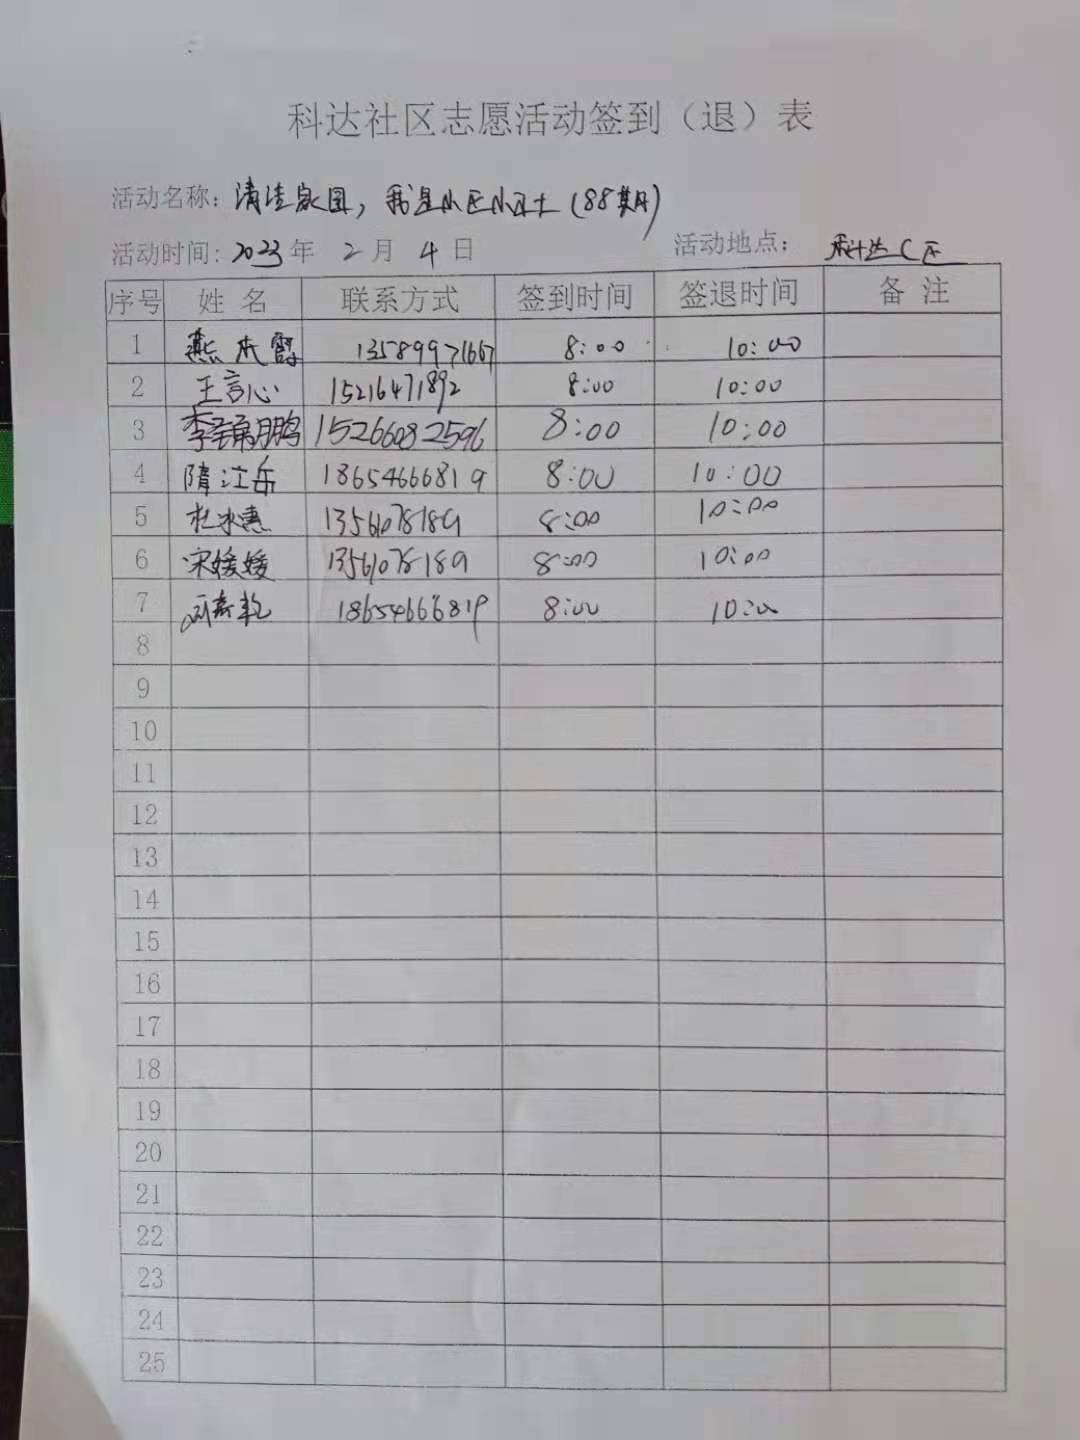 科达社区志愿活动签到（退）表
活动名称：清洁家园，我是小区小卫士（88期）
活动时间：2023年 2月 4日 活动地点：科达C区
序号 姓名 联系方式 签到时间 签退时间 备注
1 燕杰霞 13589971667 8:00 10:00
2 王言心 15216471892 8:00 10:00
3 李 鹏 15266082596 8:00 10:00
4 隋江岳 18654666819 8:00 10:00
5 杜冰惠 13561078189 8:00 10:00
6 宋媛媛 13561078189 8:00 10:00
7 18654666819 8:00 10:00
8
9
10
11
12
13
14
15
16
17
18
19
20
21
22
23
24
25